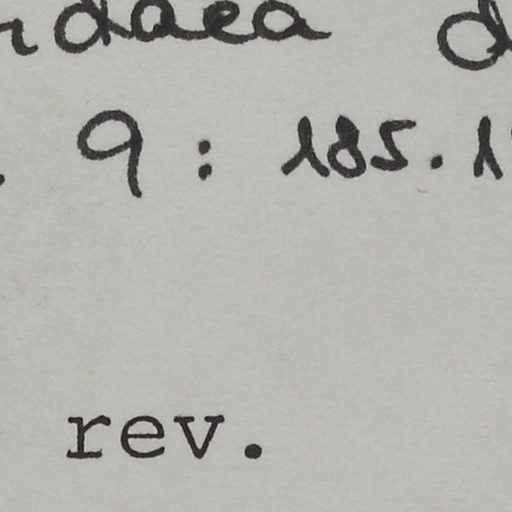 rdaea d
. 9 : 185. 1
rev.